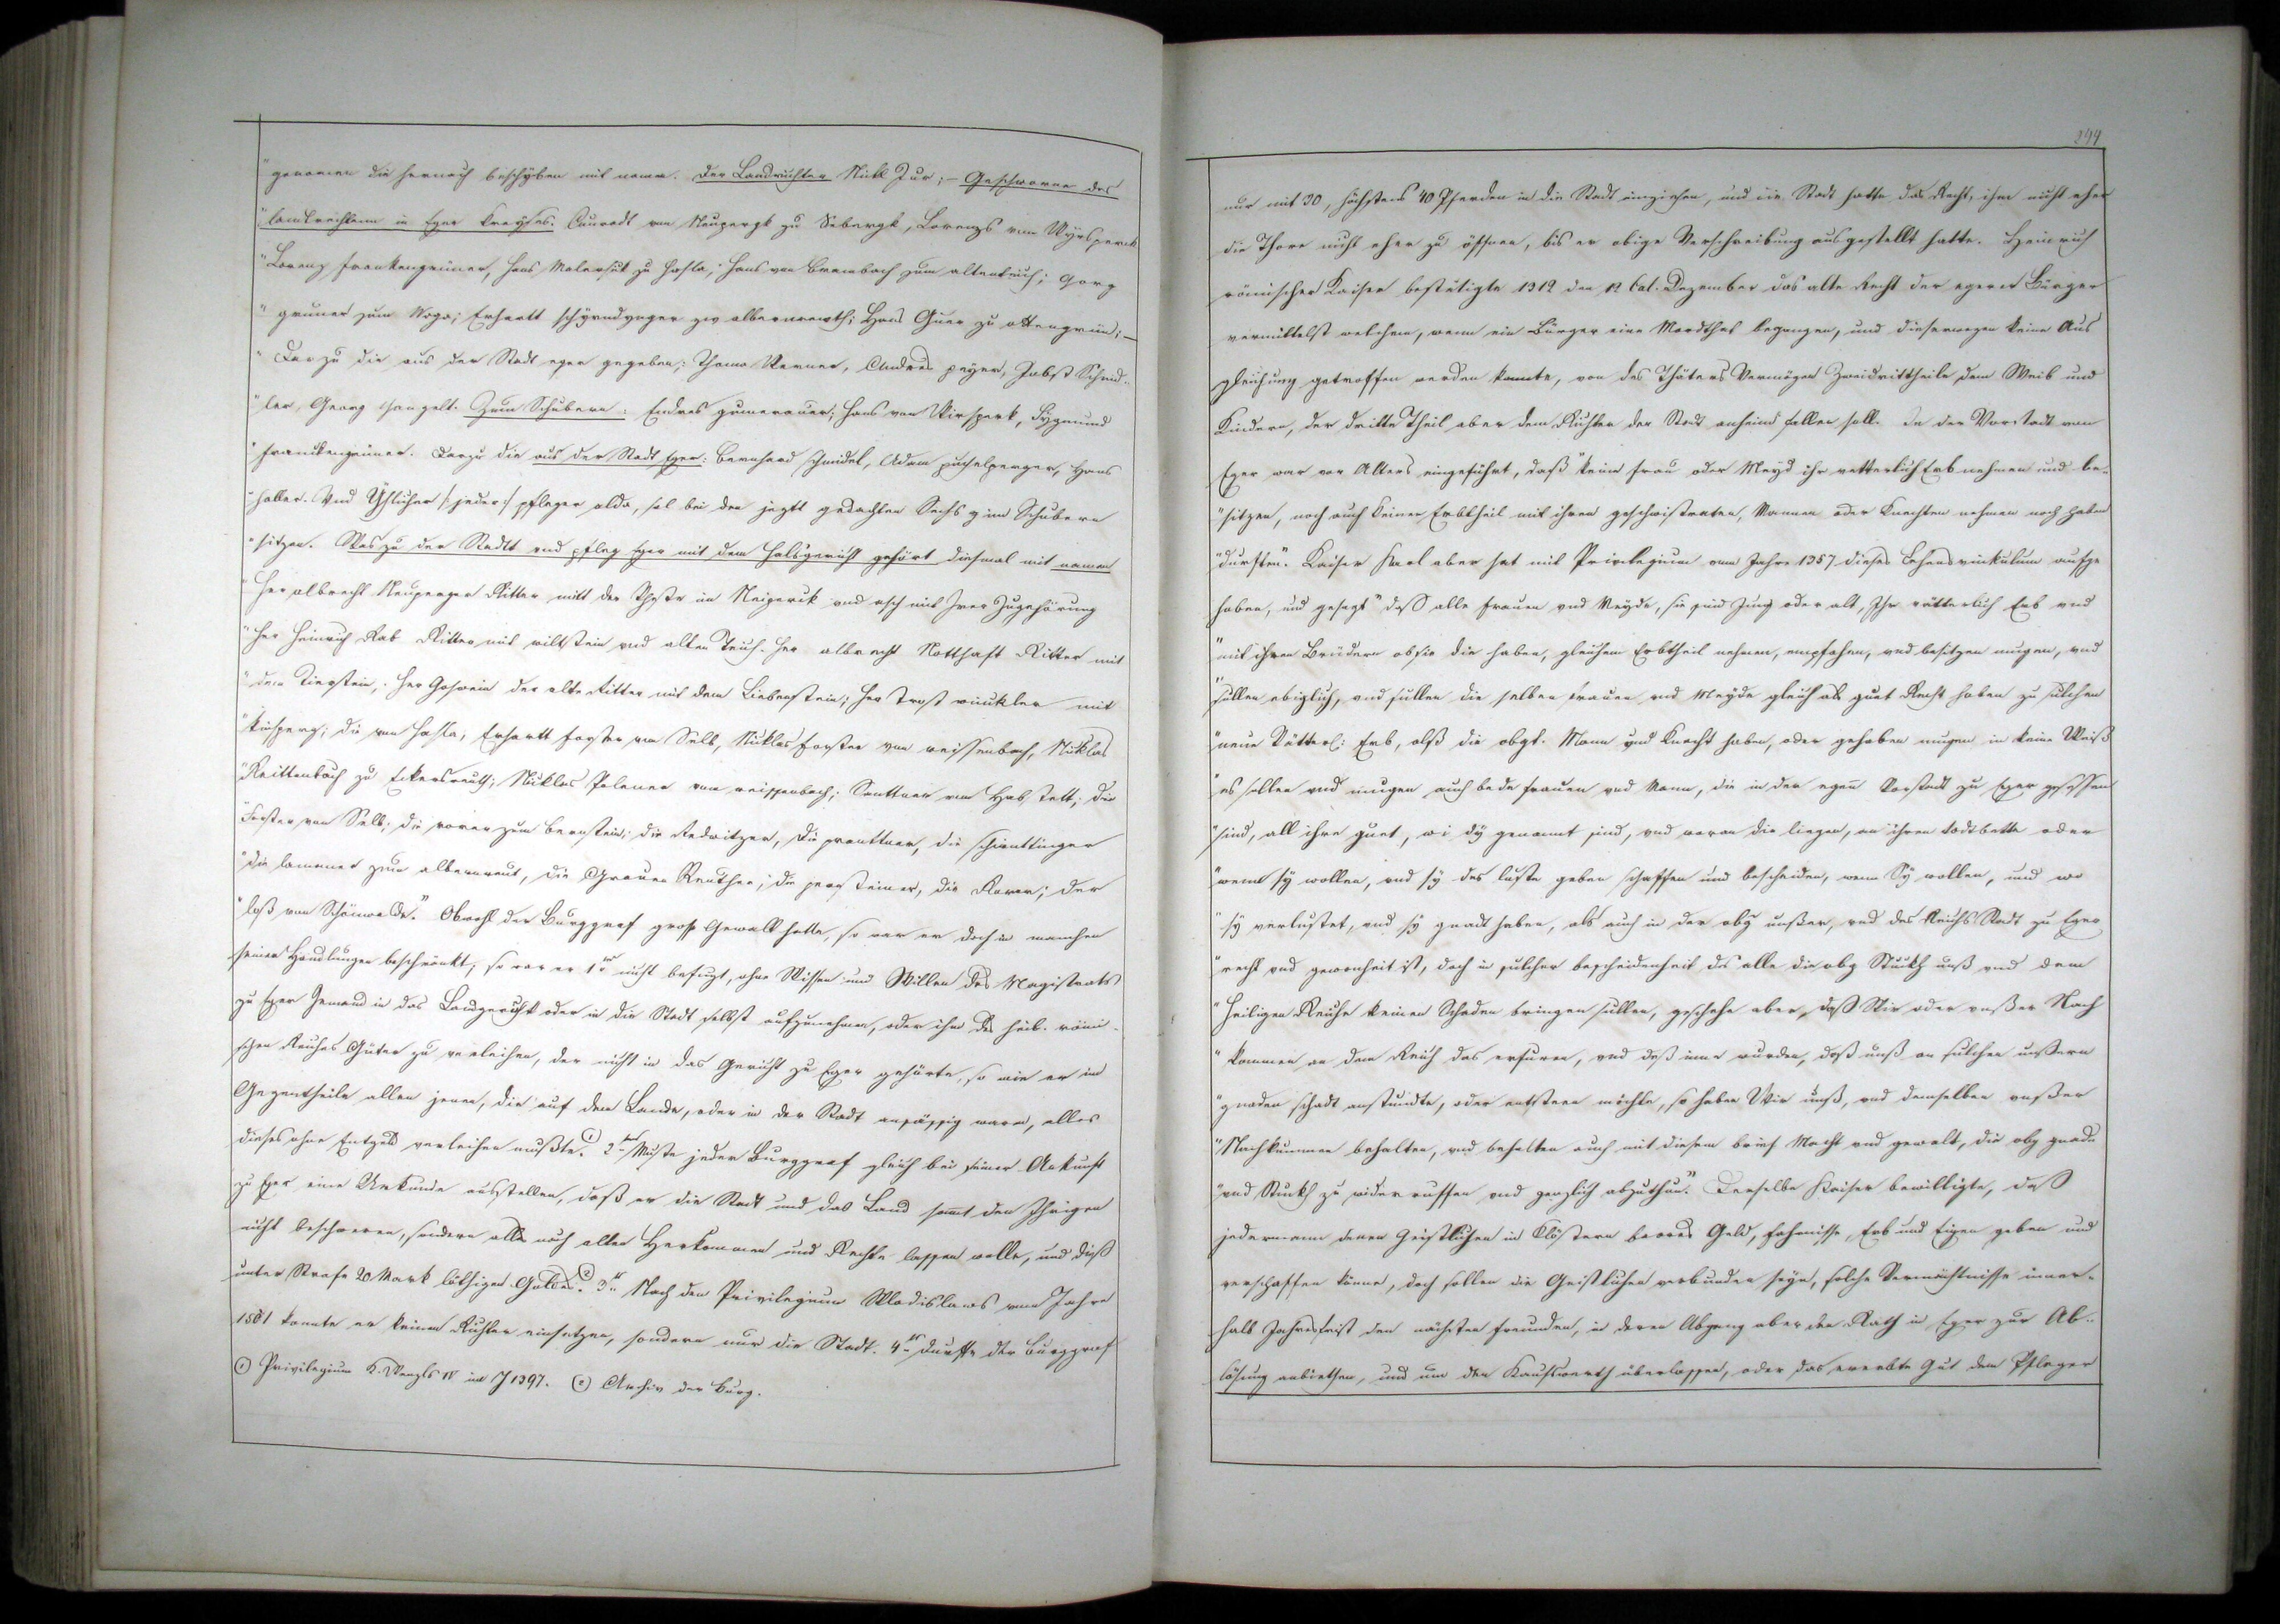 "genomen die hernach beschyben mit namen. Der Landrichter Nikl Jur; – Geschworne des
"landrechtenn in Eger Kreyses. Cunradt von Neupergk zu Sebergk, Lorenzs von Wyrsperck
"Lorenz frankengrüner, Hans Malersik zu Hasla; Hans von Brambach zum altenteich; Gorg
"gruner zum Noga; Erhartt schyrndynger zw albernrewth; Hans Guer zu ottengrün; –
"Darzu die aus der Stadt eger gegeben: Thoma Werner, Andres peyer, Jobst Schmid-
"ler, Georg hangelt. Zum Schubern: Endres gumerauer; Hans von Wirsperk, Sygmund
"franckengrüner. Darzu die aus der Stadt Eger: Bernhard schmidel, Adam puchelperger, Hans
"haller. Vnd Yslicher /: jeder :/ pfleger alda, sol bei den jeztt gedachten Sechs zim Schubern
"sitzen. Was zu der Stadtt vnd pfleg Eger mit dem Halsgericht gehört diesmal mit namen
"Her albrecht Neuperger Ritter mitt der Veste im Neipergk vnd asch mit Irer Zugehörung
"Her Heinrich Rab Ritter mit wiltstein vnd alten Teich. Her albrecht Notthaft Ritter mit
"dem Tierstein; Her Goswein der alte Ritter mit dem Liebenstein; Her Trost winkler mit
"kinsperg; die von Hasla, Erhartt forster von Selb, Niklas forster von weissenbach, Niklas
"Reittenbach zu Eckersreuth; Niklas Polaner von weissenbach; Santtner von Habstett; die
"Forster von Selb; die rorer zum bernstein; die Redwitzer, die pranttner, die schirnttinger
"die lammer zum albernreut, die Grauen Reuther; die pergsteiner, die Rorer; der
"loß von Schönwalde." Obwohl der Burggraf große Gewalt hatte, so war er doch in manchen
seiner Handlungen beschränkt; so war er 1tns nicht befugt, ohne Wissen und Willen des Magistrats
zu Eger Jemand in das Landgericht oder in die Stadt selbst aufzunehmen, oder ihm des heil. römi-
schen Reiches Güter zu verleihen, der nicht in das Gericht zu Eger gehörte, so wie er im
Gegentheile allen jenen, die auf dem Lande, oder in der Stadt ansässig waren, alles
dieses ohne Entgeld verleihen mußte. 1) 2tns Mußte jeder Burggraf gleich bei seiner Ankunft
zu Eger eine Urkunde ausstellen, daß er die Stadt und das Land samt den Ihrigen
nicht beschweren, sondern alle nach alten Herkommen und Rechte lassen wolle, und dieß
unter Strafe 20 Mark löthigen Goldes. 2) 3ts Nach dem Privilegium Wladislaws vom Jahre
1501 konnte er keinen Richter einsetzen, sondern nur die Stadt. 4ts durfte der Burggraf
(1) Privilegium K. Wenzls IV im J 1397. (2) Archiv der Burg.
244
nur mit 30, höchstens 40 Pferden in die Stadt einziehen, und die Stadt hatte das Recht, ihm nicht eher
die Thore nicht eher zu öffnen, bis er obige Verschreibung ausgestellt hatte. Heinrich
römischer Kaiser bestätigte 1312 den 12 Cal. Dezember das alte Recht der egerer Bürger
vermittelst welchem, wenn ein Bürger eine Mordthat begangen, und dieserwegen keine Aus
gleichung getroffen werden konnte, von des Thäters Vermögen Zweidrittheile dem Weib und
Kindern, der dritte Theil aber dem Richter der Stadt anheim fallen soll. In der Vorstadt von
Eger war vor Alters eingeführt, daß "keine frau oder Meyd ihr vetterlich Erb nehmen und be-
"sitzen, noch auch keinen Erbtheil mit ihren geschwistraten, Mannen oder Knechten nehmen noch haben
"durften." Kaiser Karl aber hat mit Privilegium vom Jahre 1357 dieses Lehensvinkulum aufge
hoben, und gesagt "daß alle frauen vnd Meyde, sie sind Jung oder alt, Ihr vätterlich Erb vnd
"mit ihren Brüdern ob sie die haben, gleichen Erbtheil nehmen, empfahen, vnd besitzen mugen, vnd
"sullen ewiglich, vnd sullen die selben frauen vnd Meyde gleich als guet Recht haben zu sülchen
"neuen Vätterl: Erb, alß die obgt. Mann vnd Knecht haben, oder gehaben mugen in keine Weiß
"es sollen vnd mugen auch bede frauen vnd Mann, die in der egen Vorstadt zu Eger gesessen
"sind, all ihre guet, wi dy genannt sind, vnd woran die liegen, an ihren todtbette oder
"wenn sy wollen, vnd sy des luste geben schaffen und bescheiden, wem Sy wollen, und wo
"sy verlustet, vnd sy gnadt haben, als auch in der obg unßer, vnd des Reichs Stadt zu Eger
"recht vnd gewonheit ist, doch in sulcher bescheidenheit das alle die obg Stuckh unß vnd dem
"Heiligen Reiche keinen Schaden bringen sullen, geschehe aber, daß Wir oder vnßer Nach
"kommen an dem Reich das erfuren, vnd deß inne wurden, daß unß an sulchen unßern
"gnaden schadt anstundte, oder entsteen möchte, so haben Wir unß, vnd demselben vnßer
"Nachkummen behalten, vnd behalten auch mit diesem brief Macht vnd gewalt, die obg gnade
"vnd Stuckh zu wider ruffen vnd genzlich abzuthun." Derselbe Kaiser bewilligte, daß
jedermann denen Geistlichen in Klöstern baares Geld, Fahrnisse, Erb und Eigen geben und
verschaffen könne, doch sollen die Geistlichen verbunden seyn, solche Vermächtnisse inner-
halb Jahresfrist den nächsten freunden, in deren Abgang aber den Rath in Eger zur Ab-
lösung anbiethen, und um den Kaufswerth überlassen, oder das ererbte Gut dem Pfleger